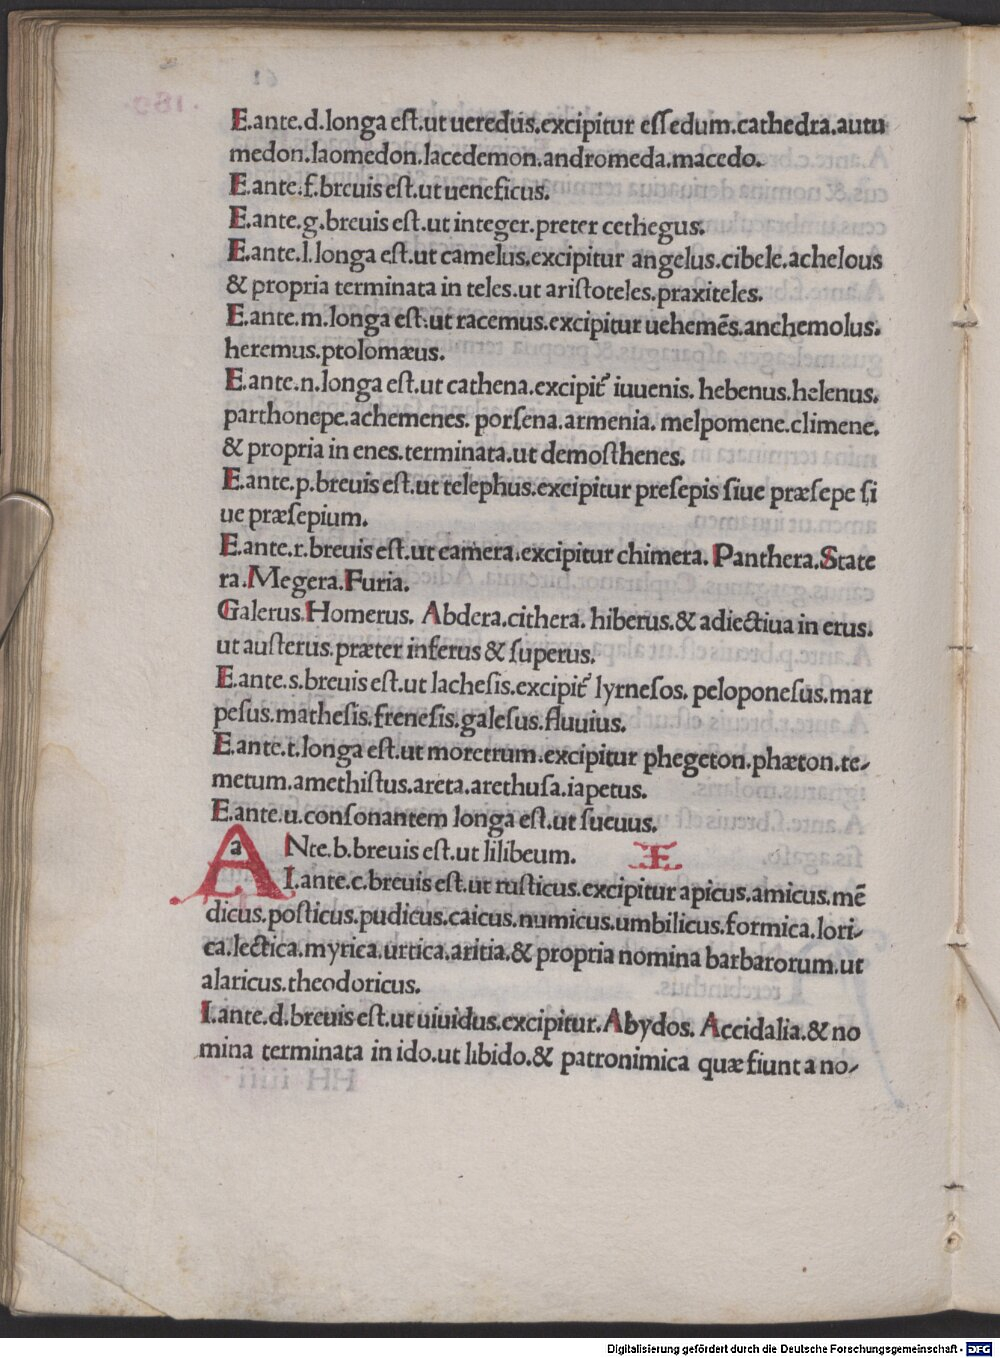 E.ante.d.longa eſt.ut ueredus.excipitur eſſedum.cathedra.autu
medon.laomedon.lacedemon.andromeda.macedo.
E.ante.f.breuis eſt.ut ueneficus.
E.ante.g.breuis eſt.ut integer.preter cethegus.
E.ante.l.longa eſt.ut camelus.excipitur angelus.cibele.achelous
& propria terminata in teles.ut ariſtoteles.praxiteles.
E.ante.m.longa eſt.ut racemus.excipitur uehemēs.anchemolus.
heremus.ptolomæus.
E.ante.n.longa eſt.ut cathena.excipit᷑ iuuenis. hebenus.helenus.
parthonepe.achemenes. porſena.armenia. melpomene.climene.
& propria in enes.terminata.ut demoſthenes.
E.ante.p.breuis eſt.ut telephus.excipitur preſepis ſiue præſepe ſi
ue præſepium.
E.ante.r.breuis eſt.ut camera.excipitur chimera. Panthera.State
ra.Megera.Furia.
Galerus.Homerus. Abdera.cithera. hiberus.& adiectiua in erus.
ut auſterus.præter inferus & ſuperus.
E.ante.s.breuis eſt.ut lacheſis.excipit᷑ lyrneſos. peloponeſus.mar
peſus.matheſis.freneſis.galeſus.fluuius.
E.ante.t.longa eſt.ut moretrum.excipitur phegeton.phæton.te-
metum.amethiſtus.areta.arethuſa.iapetus.
E.ante.u.conſonantem longa eſt.ut ſucuus.
A a Nte.b.breuis eſt.ut lilibeum. I
I.ante.c.breuis eſt.ut ruſticus.excipitur apicus.amicus.mē
dicus.poſticus.pudicus.caicus.numicus.umbilicus.formica.lori-
ca.lectica.myrica.urtica.aritia.& propria nomina barbarorum.ut
alaricus.theodoricus.
I.ante.d.breuis eſt.ut uiuidus.excipitur.Abydos. Accidalia.& no
mina terminata in ido.ut libido.& patronimica quæ fiunt a no-
Digitalisierung gefördert durch die Deutsche Forschungsgemeinschaft - DFG